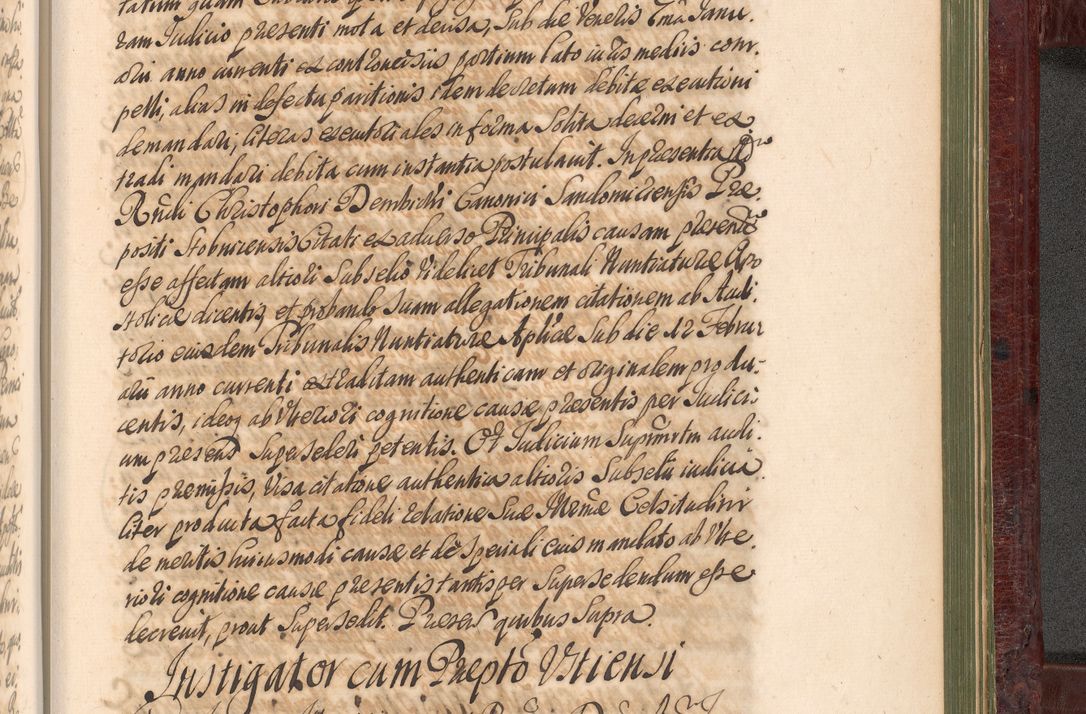 ram Judicio præsenti mota et decisa, Sub die Veneris 7ma Janu.
arii anno currenti ex controversiis partium lato iuris mediis com.
pelli, alias in defectu paritionis idem decretum debitæ executioni
demandari, literas executoriales in forma Solita decerni et ex
tradi mandari debita cum instantia postulavit. In præsentia
Rndi Christophori Dembiński Canonici Sandomiriensis Præ.
positi Stobnicensis Citati ex adverso Principalis causam præsentē
esse affectam altiori Subselio Videlicet Tribunali Nuntiaturæ Apo
stolicæ dicentis, et probando suam allegationem citationem ab Audi.
torio eiusdem Tribunalis Nuntiaturæ Aplicæ Sub die 12 Febru
arii anno currenti extraditam authenticam et originalem produ-
centis, ideoq ab Ulteriori cognitione causæ præsentis per Judici
um præsens Supersederi petentis. Et Judicium Suprmrtm audi.
tis præmissis, Visa citatione authentica altioris Subselii iudicia
liter producta facta fideli relatione Suæ Celsitudini
de meritis huiusmodi causæ et de Speciali eius mandato ab Ulte.
riori cognitione causæ præsentis tantisper Supersedendum esse
decrevit, prout Supersedit. Præsen quibus Supra.
Instigator cum Præpto Ustiensi